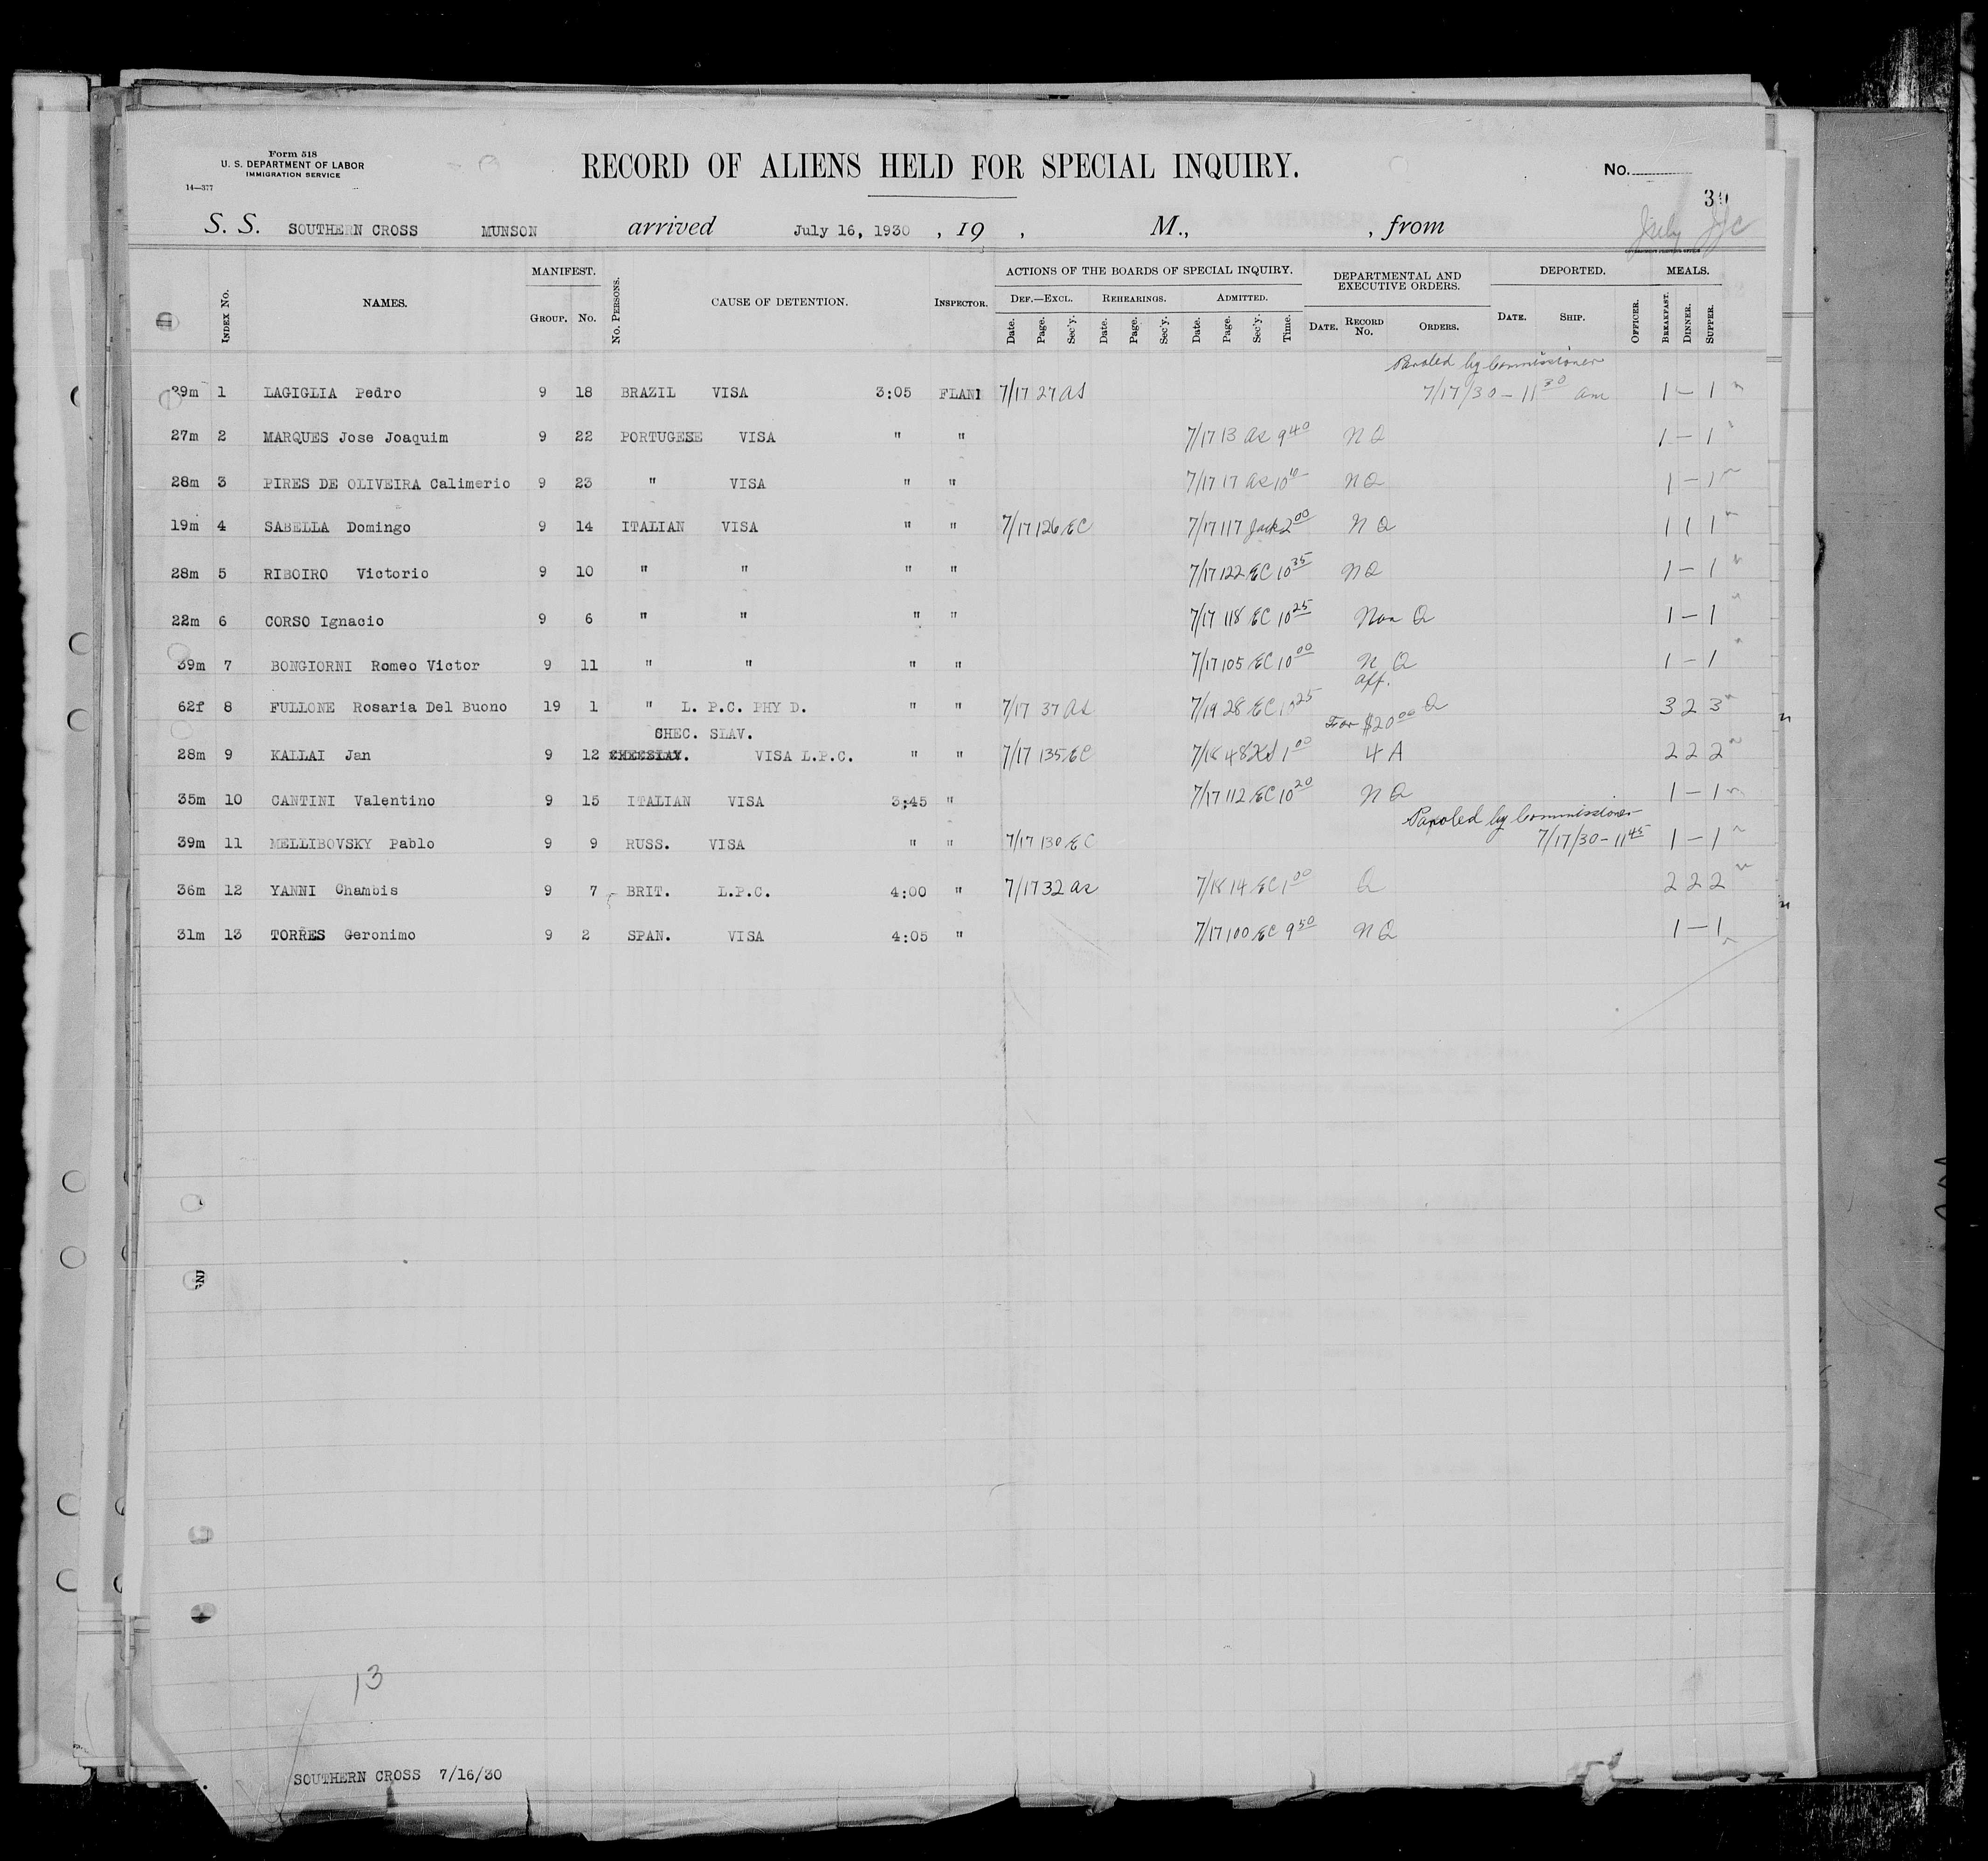 Form 518
U. S. DEPARTMENT OF LABOR
IMMIGRATION SERVICE
14—377
RECORD OF ALIENS HELD FOR SPECIAL INQUIRY.
No.
S. S. SOUTHERN CROSS MUNSON arrived July 16, 1930 , 19 , M., , from
INDEX No. NAMES. MANIFEST. GROUP. No. No. PERSONS. CAUSE OF DETENTION. INSPECTOR. ACTIONS OF THE BOARDS OF SPECIAL INQUIRY. DEF.—EXCL. Date. Page. Sec'y. REHEARINGS. Date. Page. Sec'y. ADMITTED. Date. Page. Sec'y. Time. DEPARTMENTAL AND EXECUTIVE ORDERS. DATE. RECORD No. ORDERS. DEPORTED. DATE. SHIP. OFFICER. MEALS. BREAKFAST. DINNER. SUPPER.
Paroled by Commissioner
39m 1 LAGIGLIA Pedro 9 18 BRAZIL VISA 3:05 FLANI 7/17 27 AS 7/17/30 - 11 30 am 1 - 1
27m 2 MARQUES Jose Joaquim 9 22 PORTUGESE VISA " " 7/17 13 AS 9 40 N Q 1 - 1
28m 3 PIRES DE OLIVEIRA Calimerio 9 23 " VISA " " 7/17 17 AS 10 N Q 1 - 1
19m 4 SABELLA Domingo 9 14 ITALIAN VISA " " 7/17 126 EC 7/17 117 2 00 N Q 1 1 1
28m 5 RIBOIRO Victorio 9 10 " " " " 7/17 122 EC 10 35 N Q 1 - 1
22m 6 CORSO Ignacio 9 6 " " " " 7/17 118 EC 10 25 Non Q 1 - 1
39m 7 BONGIORNI Romeo Victor 9 11 " " " " 7/17 105 EC 10 00 N Q 1 - 1
aff.
62f 8 FULLONE Rosaria Del Buono 19 1 " L. P.C. PHY D. " " 7/17 37 AS 7/19 28 EC 10 25 For $20 00 Q 3 2 3
CHEC. SLAV.
28m 9 KALLAI Jan 9 12 CHECSLAV. VISA L.P.C. " " 7/17 135 EC 7/18 48 1 00 4 A 2 2 2
35m 10 CANTINI Valentino 9 15 ITALIAN VISA 3:45 " 7/17 112 EC 10 20 N Q 1 - 1
Paroled by Commissioner
39m 11 MELLIBOVSKY Pablo 9 9 RUSS. VISA " " 7/17 130 EC 7/17/30 - 11 45 1 - 1
36m 12 YANNI Chambis 9 7 BRIT. L.P.C. 4:00 " 7/17 32 AS 7/18 14 EC 1 00 Q 2 2 2
31m 13 TORRES Geronimo 9 2 SPAN. VISA 4:05 " 7/17 100 EC 9 50 N Q 1 - 1
13
SOUTHERN CROSS 7/16/30